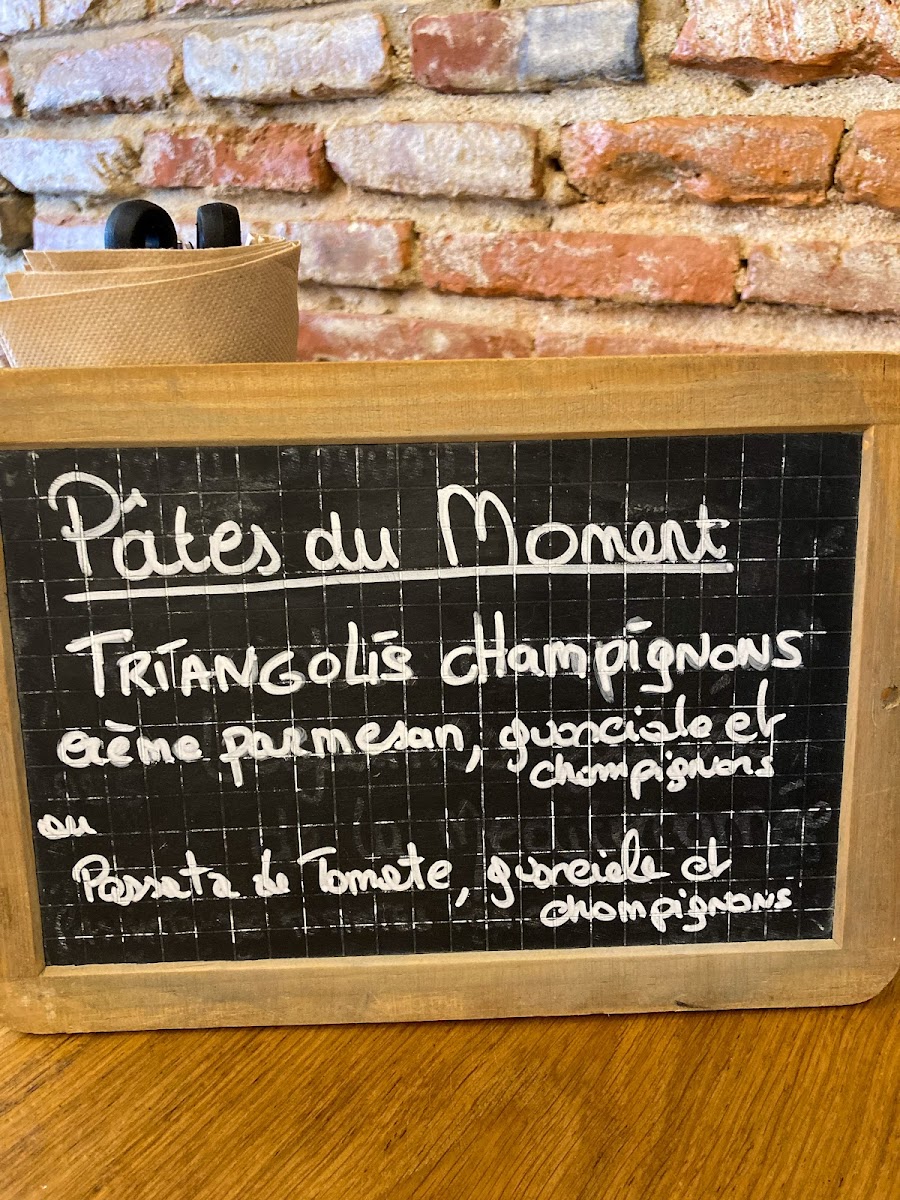 Pâtes du Moment
TRIANGOLIS CHampigNONS
crème parmesan, guanciale et
champignons
ou
Passata de Tomate, guanciale et
champignons